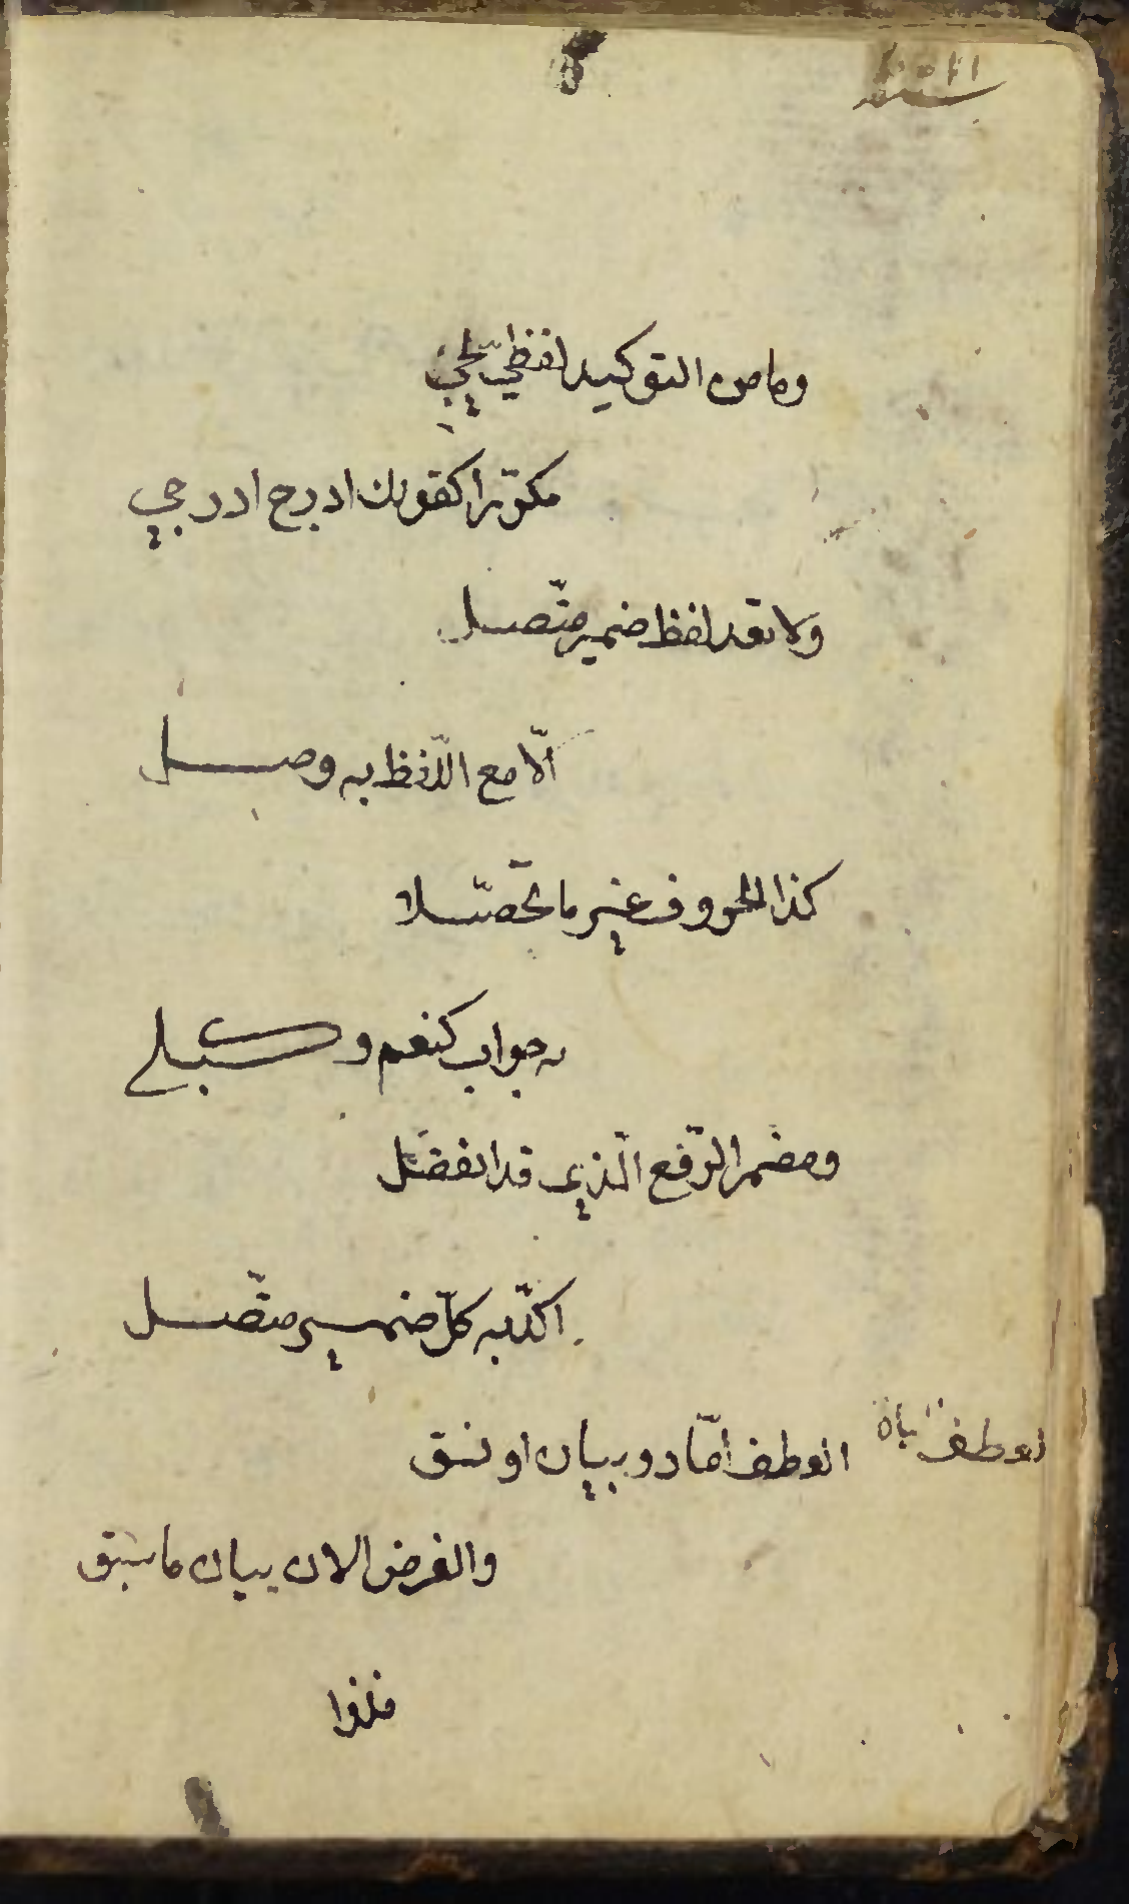 وما من التوكيد لفظيّ يجي
مكرّرا كقولك ادرج ادرجي
ولا تعد لفظ ضمير متّصل
الّا مع اللّفظ به وصل
كذا الحروف غير ما تحصّلا
به جواب كنعم وكبلى
ومضمر الرّفع الّذي قد انفصل
اكّد به كلّ ضمير متّصل
العطف امّا ذو بيان او نسق
والغرض الان بيان ما سبق
فذوا